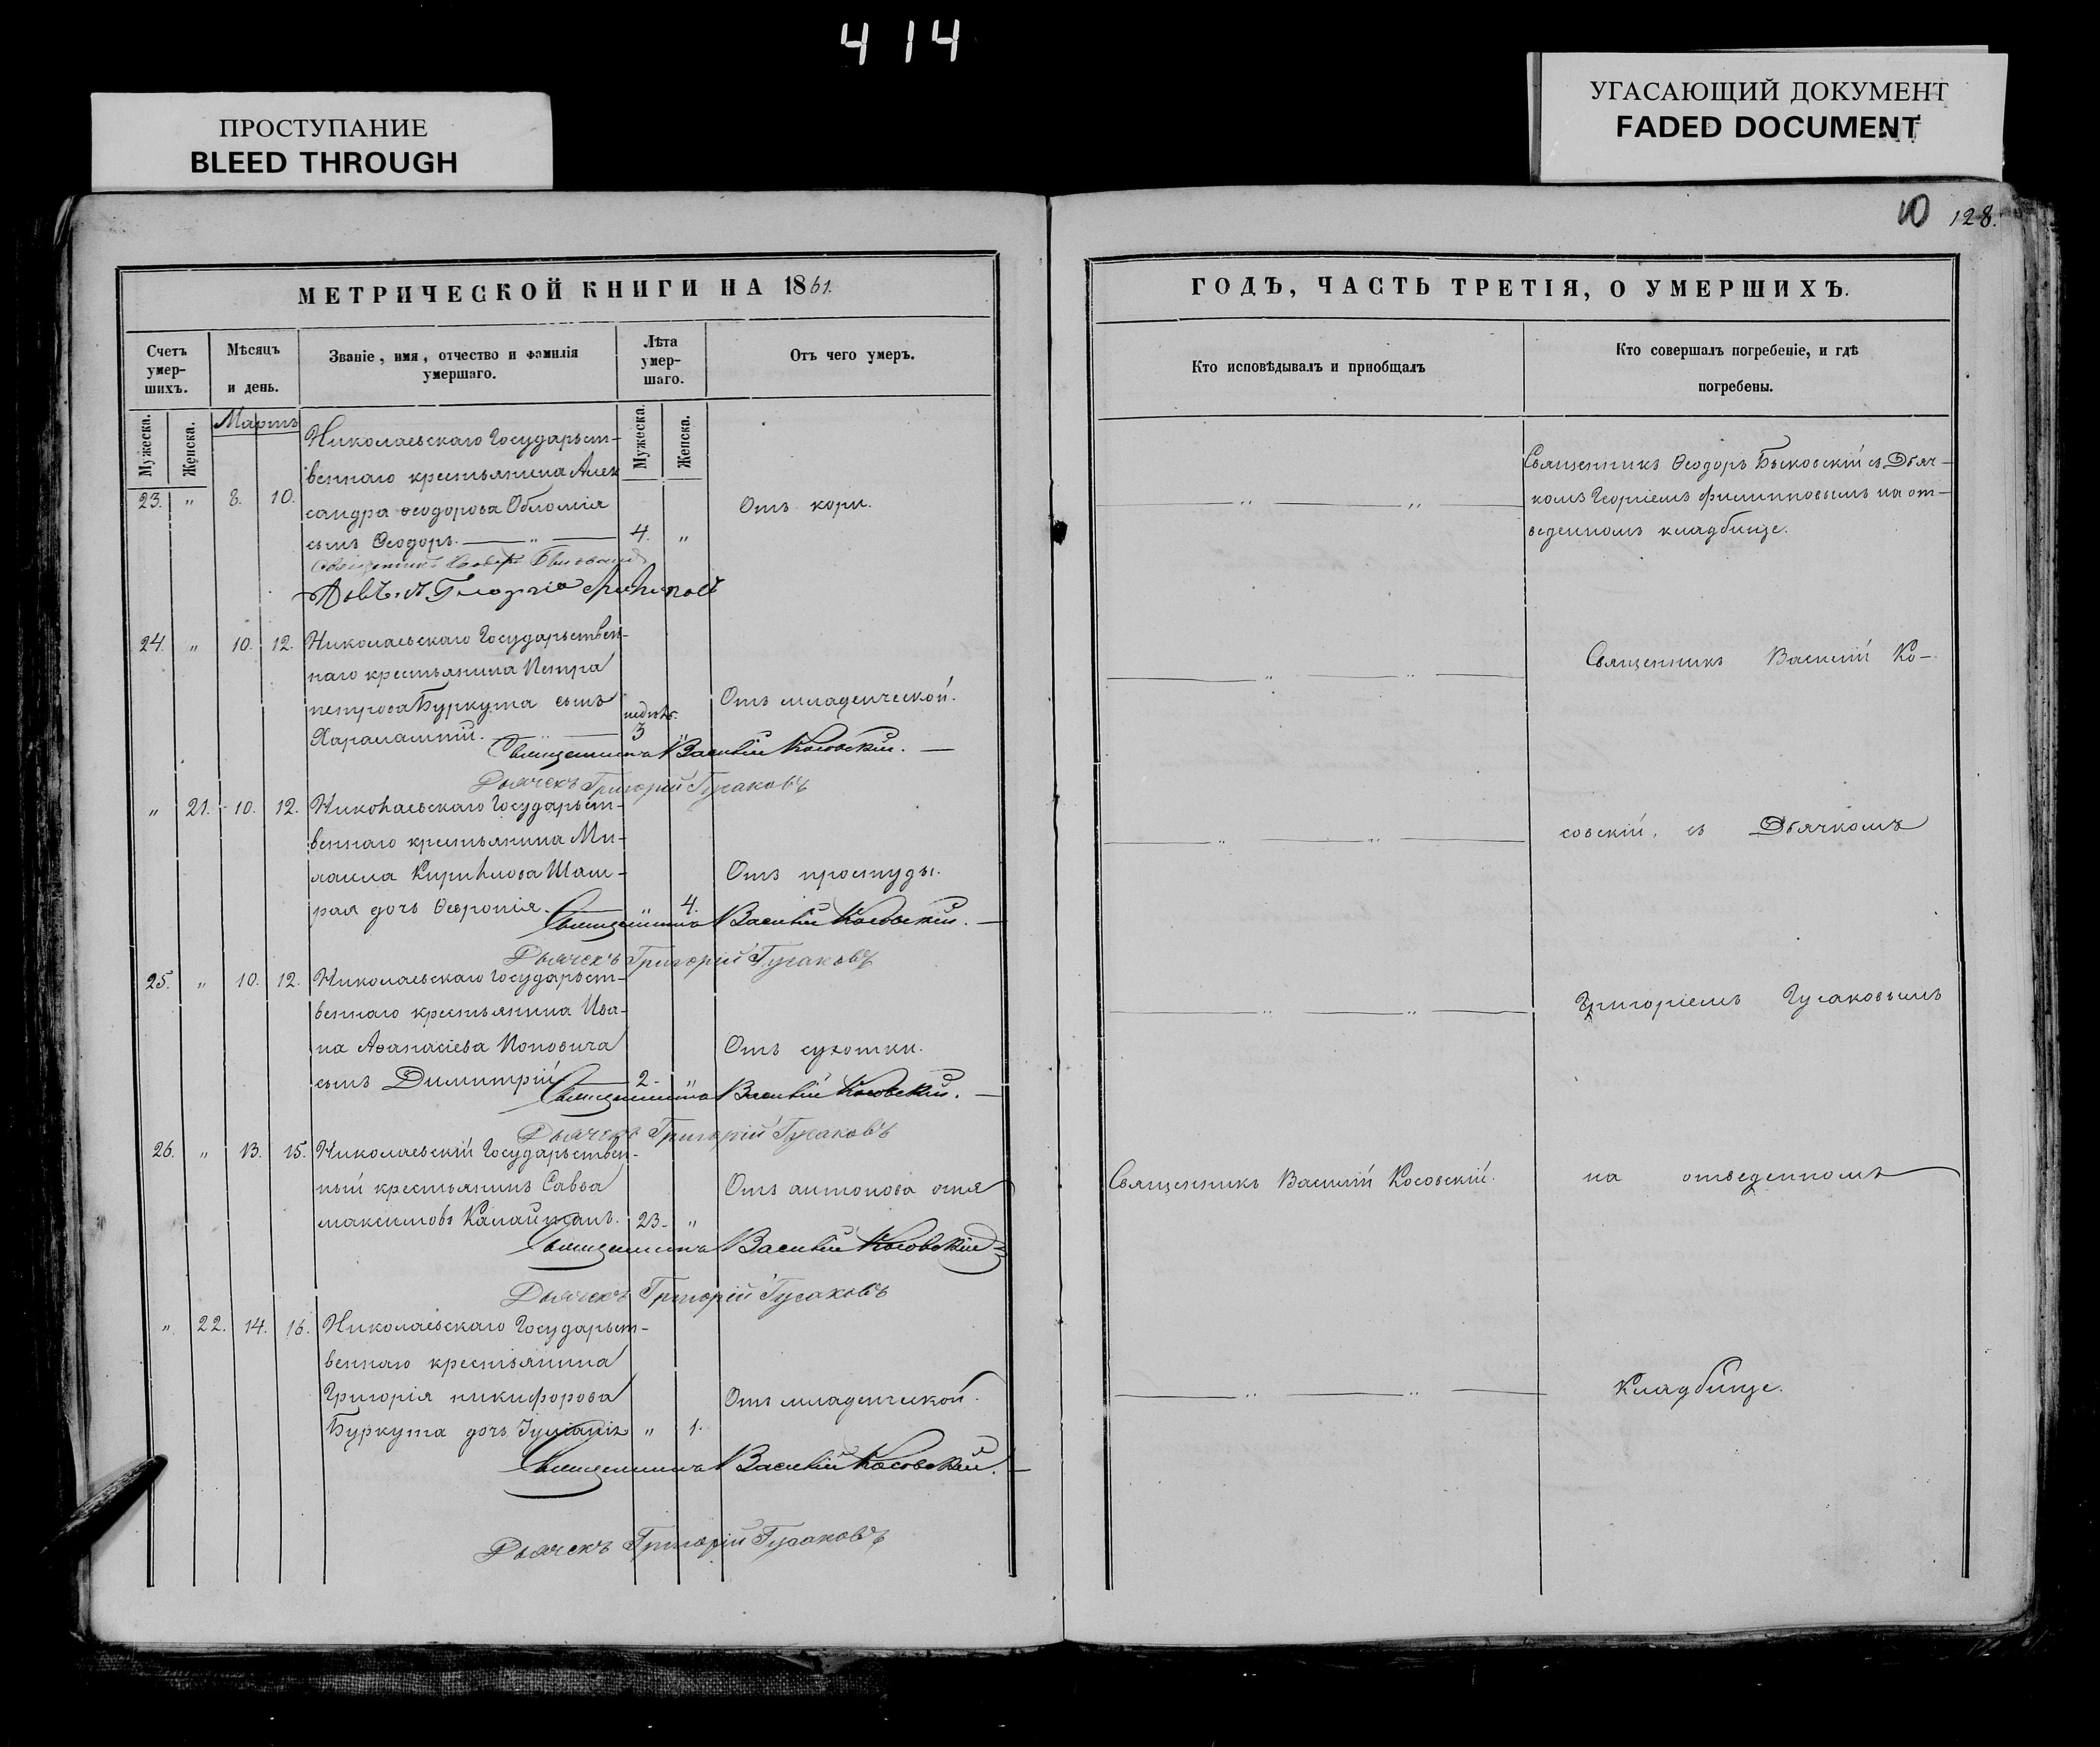 414
ПРОСТУПАНИЕ
BLEED THROUGH
УГАСАЮЩИЙ ДОКУМЕНТ
FADED DOCUMENT
10 128.
МЕТРИЧЕСКОЙ КНИГИ НА 1861.
Счетъ умер-шихъ.
Мѣсяцъ и день.
Званіе, имя, отчество и фамилія умершаго.
Лѣта умер-шаго.
Отъ чего умеръ.
Мужеска.
Женска.
Мартъ
Мужеска.
Женска.
Николаевскаго Государьст-
веннаго крестьянина Алек
23. " 8. 10. сандра Ѳеодорова Обломія Отъ кори.
сынъ Ѳеодоръ. — " — 4. "
24. " 10. 12. Николаевскаго Государьствен-
наго крестьянина Петра
петрова Буркута сынъ недѣль. Отъ младенческой.
Харалампій. — " — 3 "
Священникъ Василій Косовскій. —
Дьячекъ Григорій Гусаковъ
" 21. 10. 12. Николаевскаго Государьст-
веннаго крестьянина Ми-
хаила Кирилова Шам-
Отъ простуды.
рая дочь Ѳевронія. — " 4.
Священникъ Василій Косовскій. —
Дьячекъ Григорій Гусаковъ
25. " 10. 12. Николаевскаго Государьст-
веннаго крестьянина Ива-
на Аѳанасіева Поповича Отъ сухотки.
сынъ Димитрій — 2. "
Священникъ Василій Косовскій. —
Дьячекъ Григорій Гусаковъ
26. " 13. 15. Николаевскій Государьствен-
ный крестьянинъ Савва Отъ антонова огня
максимовъ 23. "
Священникъ Василій Косовскій
Дьячекъ Григорій Гусаковъ
" 22. 14. 16. Николаевскаго Государьст-
веннаго крестьянина
Григорія никифорова Отъ младенческой.
Буркута дочь Іуліанія " 1.
Священникъ Василій Косовскій. —
Дьячекъ Григорій Гусаковъ
ГОДЪ, ЧАСТЬ ТРЕТІЯ, О УМЕРШИХЪ.
Кто исповѣдывалъ и приобщалъ
Кто совершалъ погребеніе, и гдѣ погребены.
Священникъ Ѳеодоръ Быковскій съ Дьяч-
— " — " — комъ Георгіемъ Филипповымъ на от-
веденномъ кладбище.
— " — " — Священникъ Василій Ко-
— " — " — совскій, съ Дьячкомъ
— " — " — Григоріемъ Гусаковымъ
Священникъ Василій Косовскій. на отведенномъ
— " — " — Кладбище.